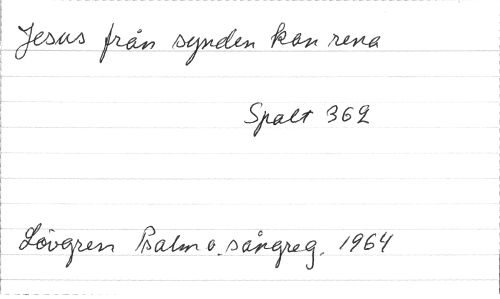 Jesus från synden kan rena
Spalt 362
Lövgren Psalm o. sångreg. 1964